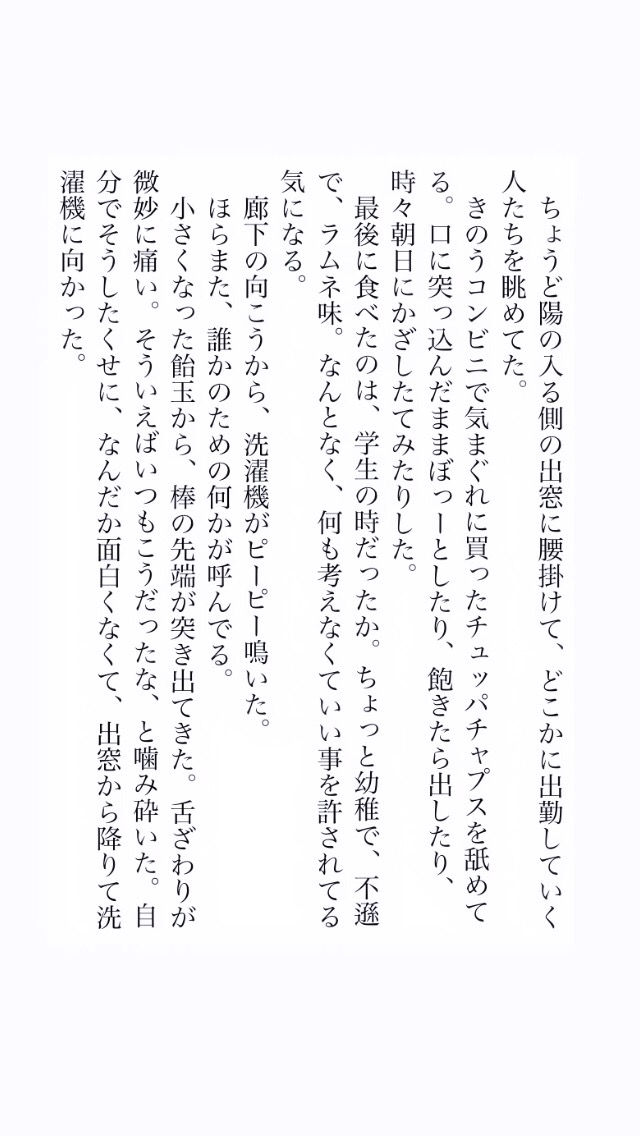 ちょうど陽の入る側の出窓に腰掛けて、どこかに出勤していく
人たちを眺めてた。
きのうコンビニで気まぐれに買ったチュッパチャプスを舐めて
る。口に突っ込んだままぼっーとしたり、飽きたら出したり、
時々朝日にかざしたてみたりした。
最後に食べたのは、学生の時だったか。ちょっと幼稚で、不遜
で、ラムネ味。なんとなく、何も考えなくていい事を許されてる
気になる。
廊下の向こうから、洗濯機がピーピー鳴いた。
ほらまた、誰かのための何かが呼んでる。
小さくなった飴玉から、棒の先端が突き出てきた。舌ざわりが
微妙に痛い。そういえばいつもこうだったな、と噛み砕いた。自
分でそうしたくせに、なんだか面白くなくて、出窓から降りて洗
濯機に向かった。